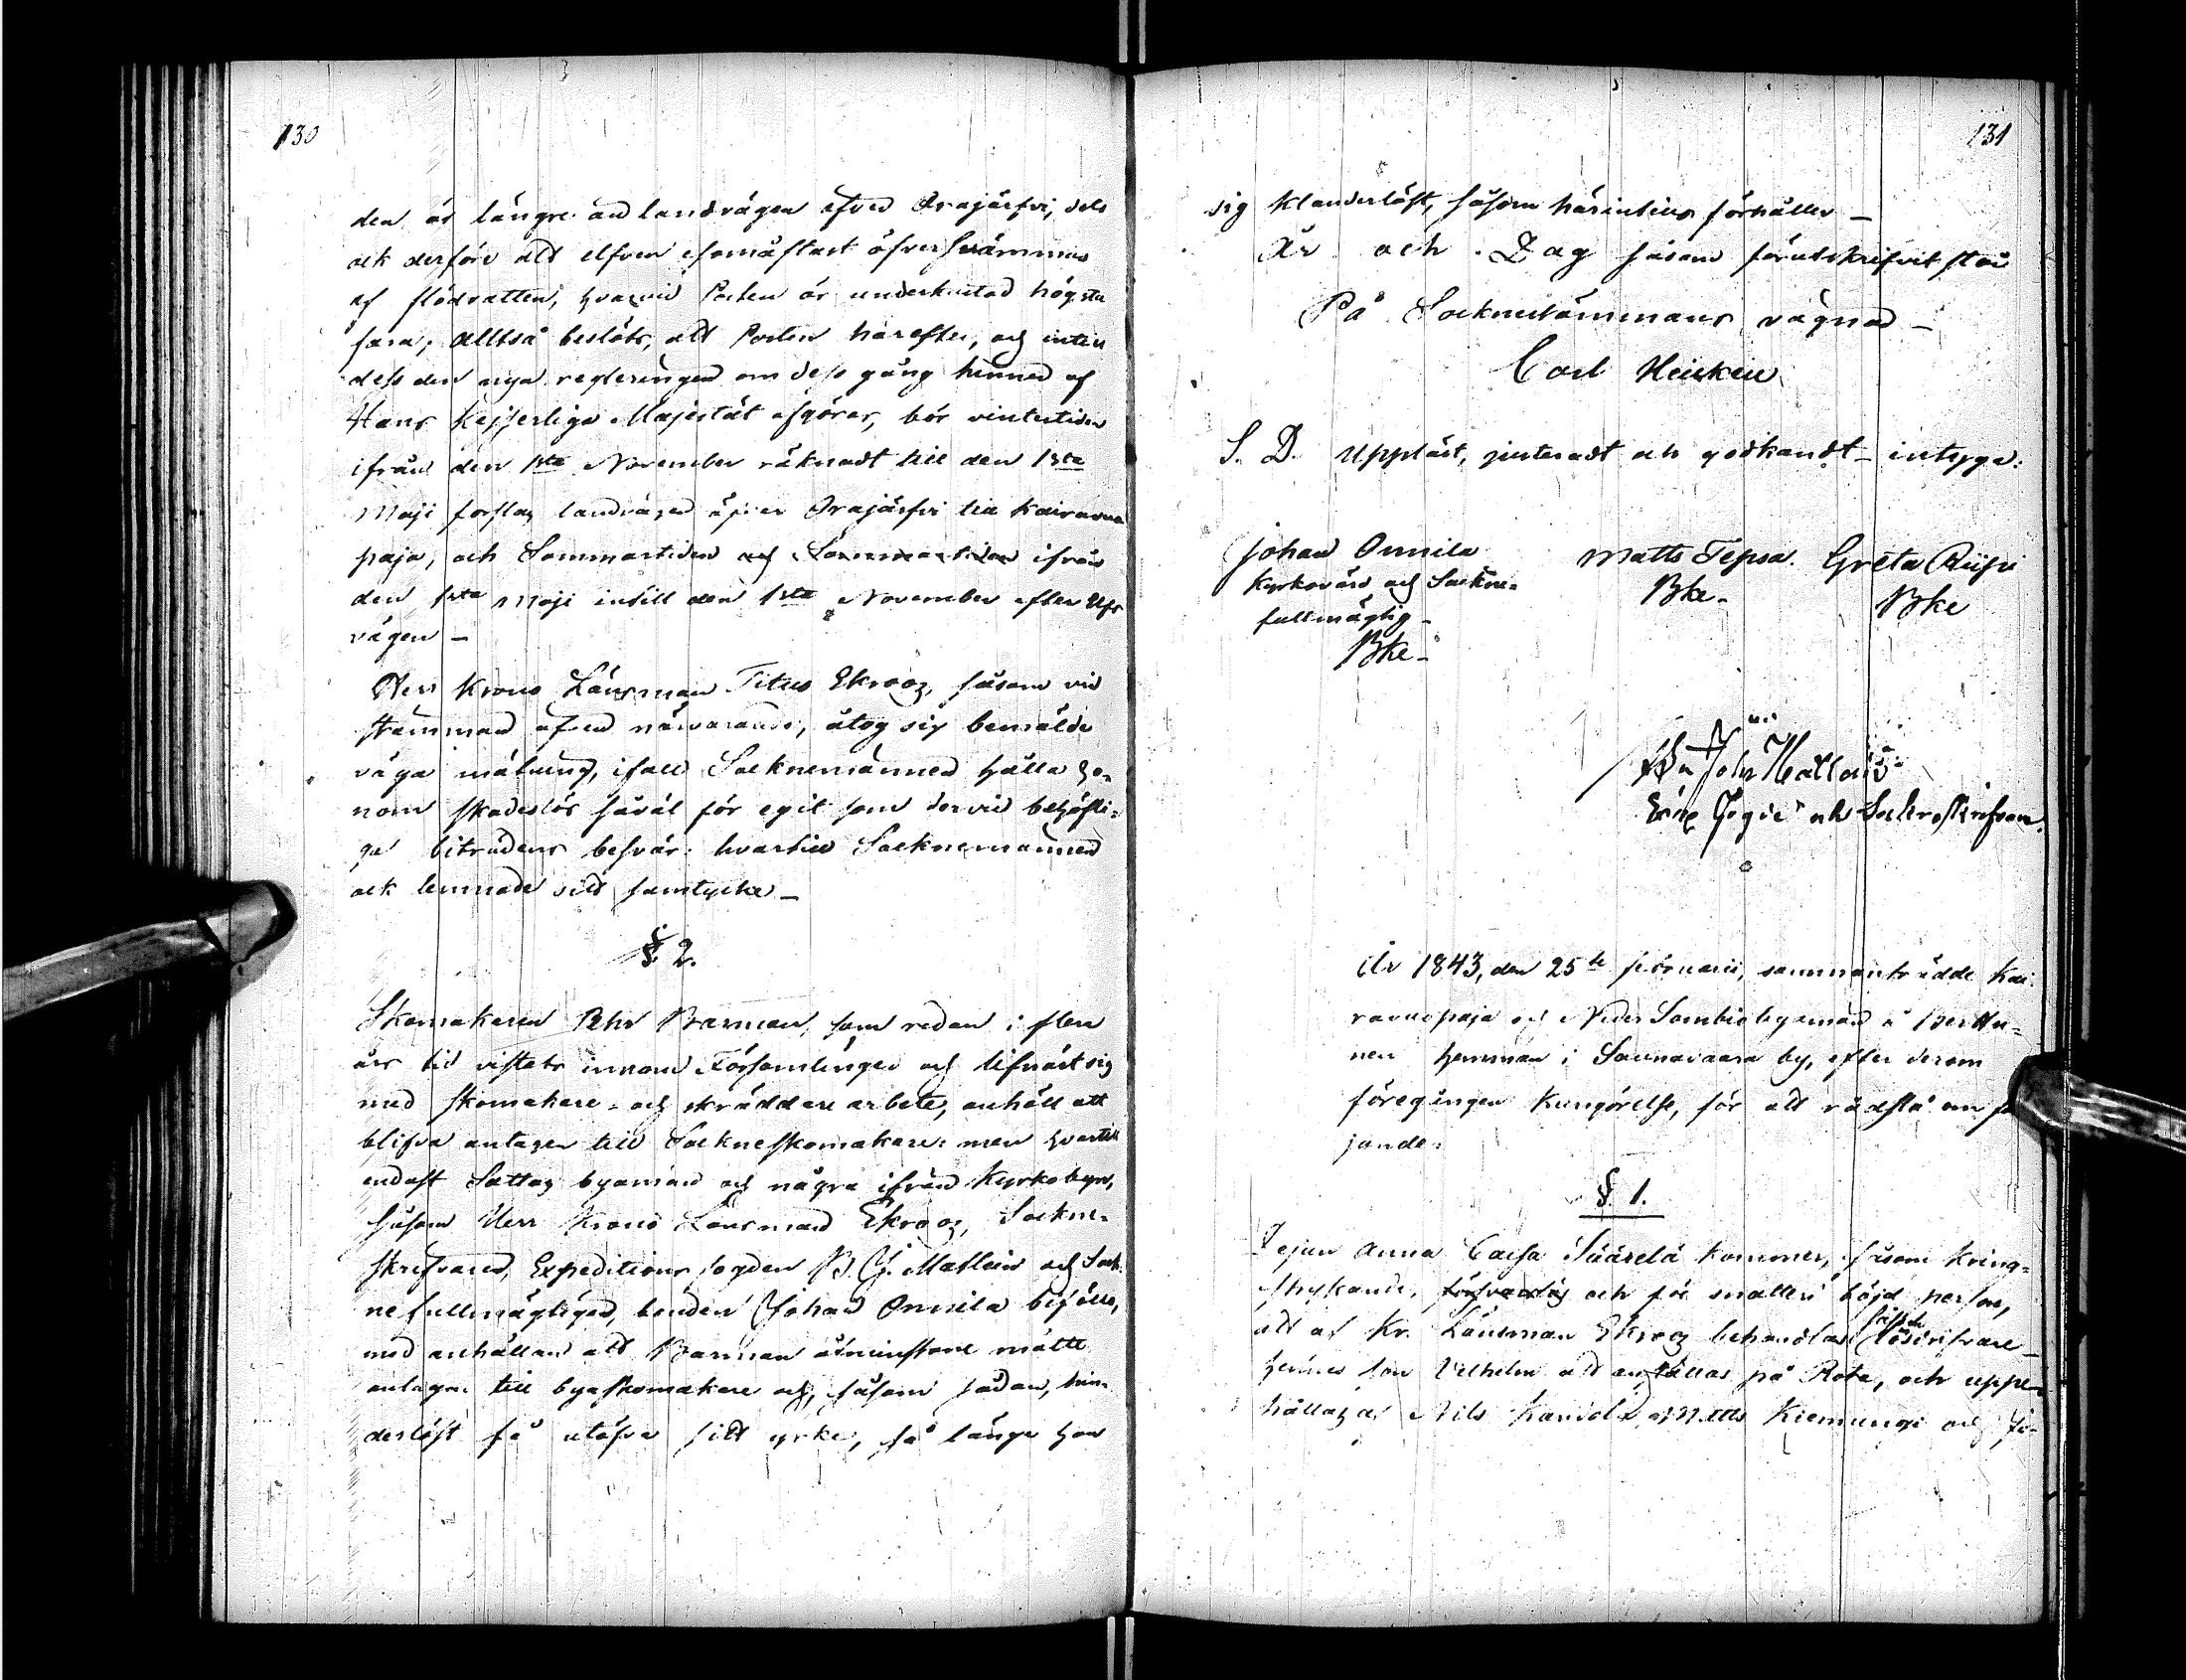 130
den är längre än landvägen öfver Orajärfvi, dels
ock derföre att elfven esomåftast öfversvämmas
af flödvatten, hvarvid Posten är underkastad högsta
fara; alltså beslöts, att Posten härefter, och intill
dess den nya regleringen om dess gång hinner af
Hans Kejserliga Majestät afgöras, bör vintertiden
ifrån den 1sta November räknadt till den 1sta
Maji forslas landvägen öfver Orajärfvi till Kairavuo
paja, och Sommartiden och Sommartiden ifrån
den 1sta Maji intill den 1sta November efter Elfs
vägen –
Herr Krono Länsman Titus Ekroos, såsom vid
stämman äfven närvarande, åtog sig bemälde
väga mätning, ifall Socknemännen hålla ho-
nom skadeslös såväl för eget som dervid behöfli-
ga biträdens besvär: hvartill Socknemännen
ock lemnade sitt samtycke –
§ 2.
Skomakaren Pehr Barman, som redan i flere
års tid vistats innom Församlingen och lifnärt sig
med skomakare- och skräddare arbete, anhöll att
blifva antagen till Sockneskomakare: men hvartill
endast Sattas byamän och några ifrån Kyrkobyn,
såsom Herr Krono Länsman Ekroos, Sockne-
skrifvaren, Expeditions fogden B. J. Mathlein och Sock-
nefullmägtigen, bonden Johan Onnila biföllo,
med anhållan att Barman åtminstone måtte
antagas till byaskomakare och, såsom sådan, hin-
derlöst få utöfva sitt yrke, så länge han
131
sig klanderlöst, såsom härintills förhåller –
År och Dag såsom förutskrifvit står
På Socknestämmans vägnar –
Carl Heickell
S. D. Uppläst, justeradt och godkändt – intyga:
Johan Onnila Matts Tepsa Greta Riipi
Kyrkovärd och Sockne- Bke – Bke
fullmägtig –
Bke –
och Sockneskrifvare.
År 1843, den 25te februarii, sammanträdde Kai-
ravuopaja och Neder Sombio byamän å Perttu-
nen hemman i Saunavaara by, efter derom
föregången kungörelse, för att rådslå om föl
jande:
§. 1.
Pejan Anna Caisa Säärelä kommer, såsom kring-
strykande, försvarslös och för snatteri böjd person,
att af Kr. Länsman Ekroos behandlas såsom lösdrifvare –
hennes son Vilhelm att anställas på Rota, och uppe-
hållas af Nils Kandola, Matts Kiemungi och Jo-